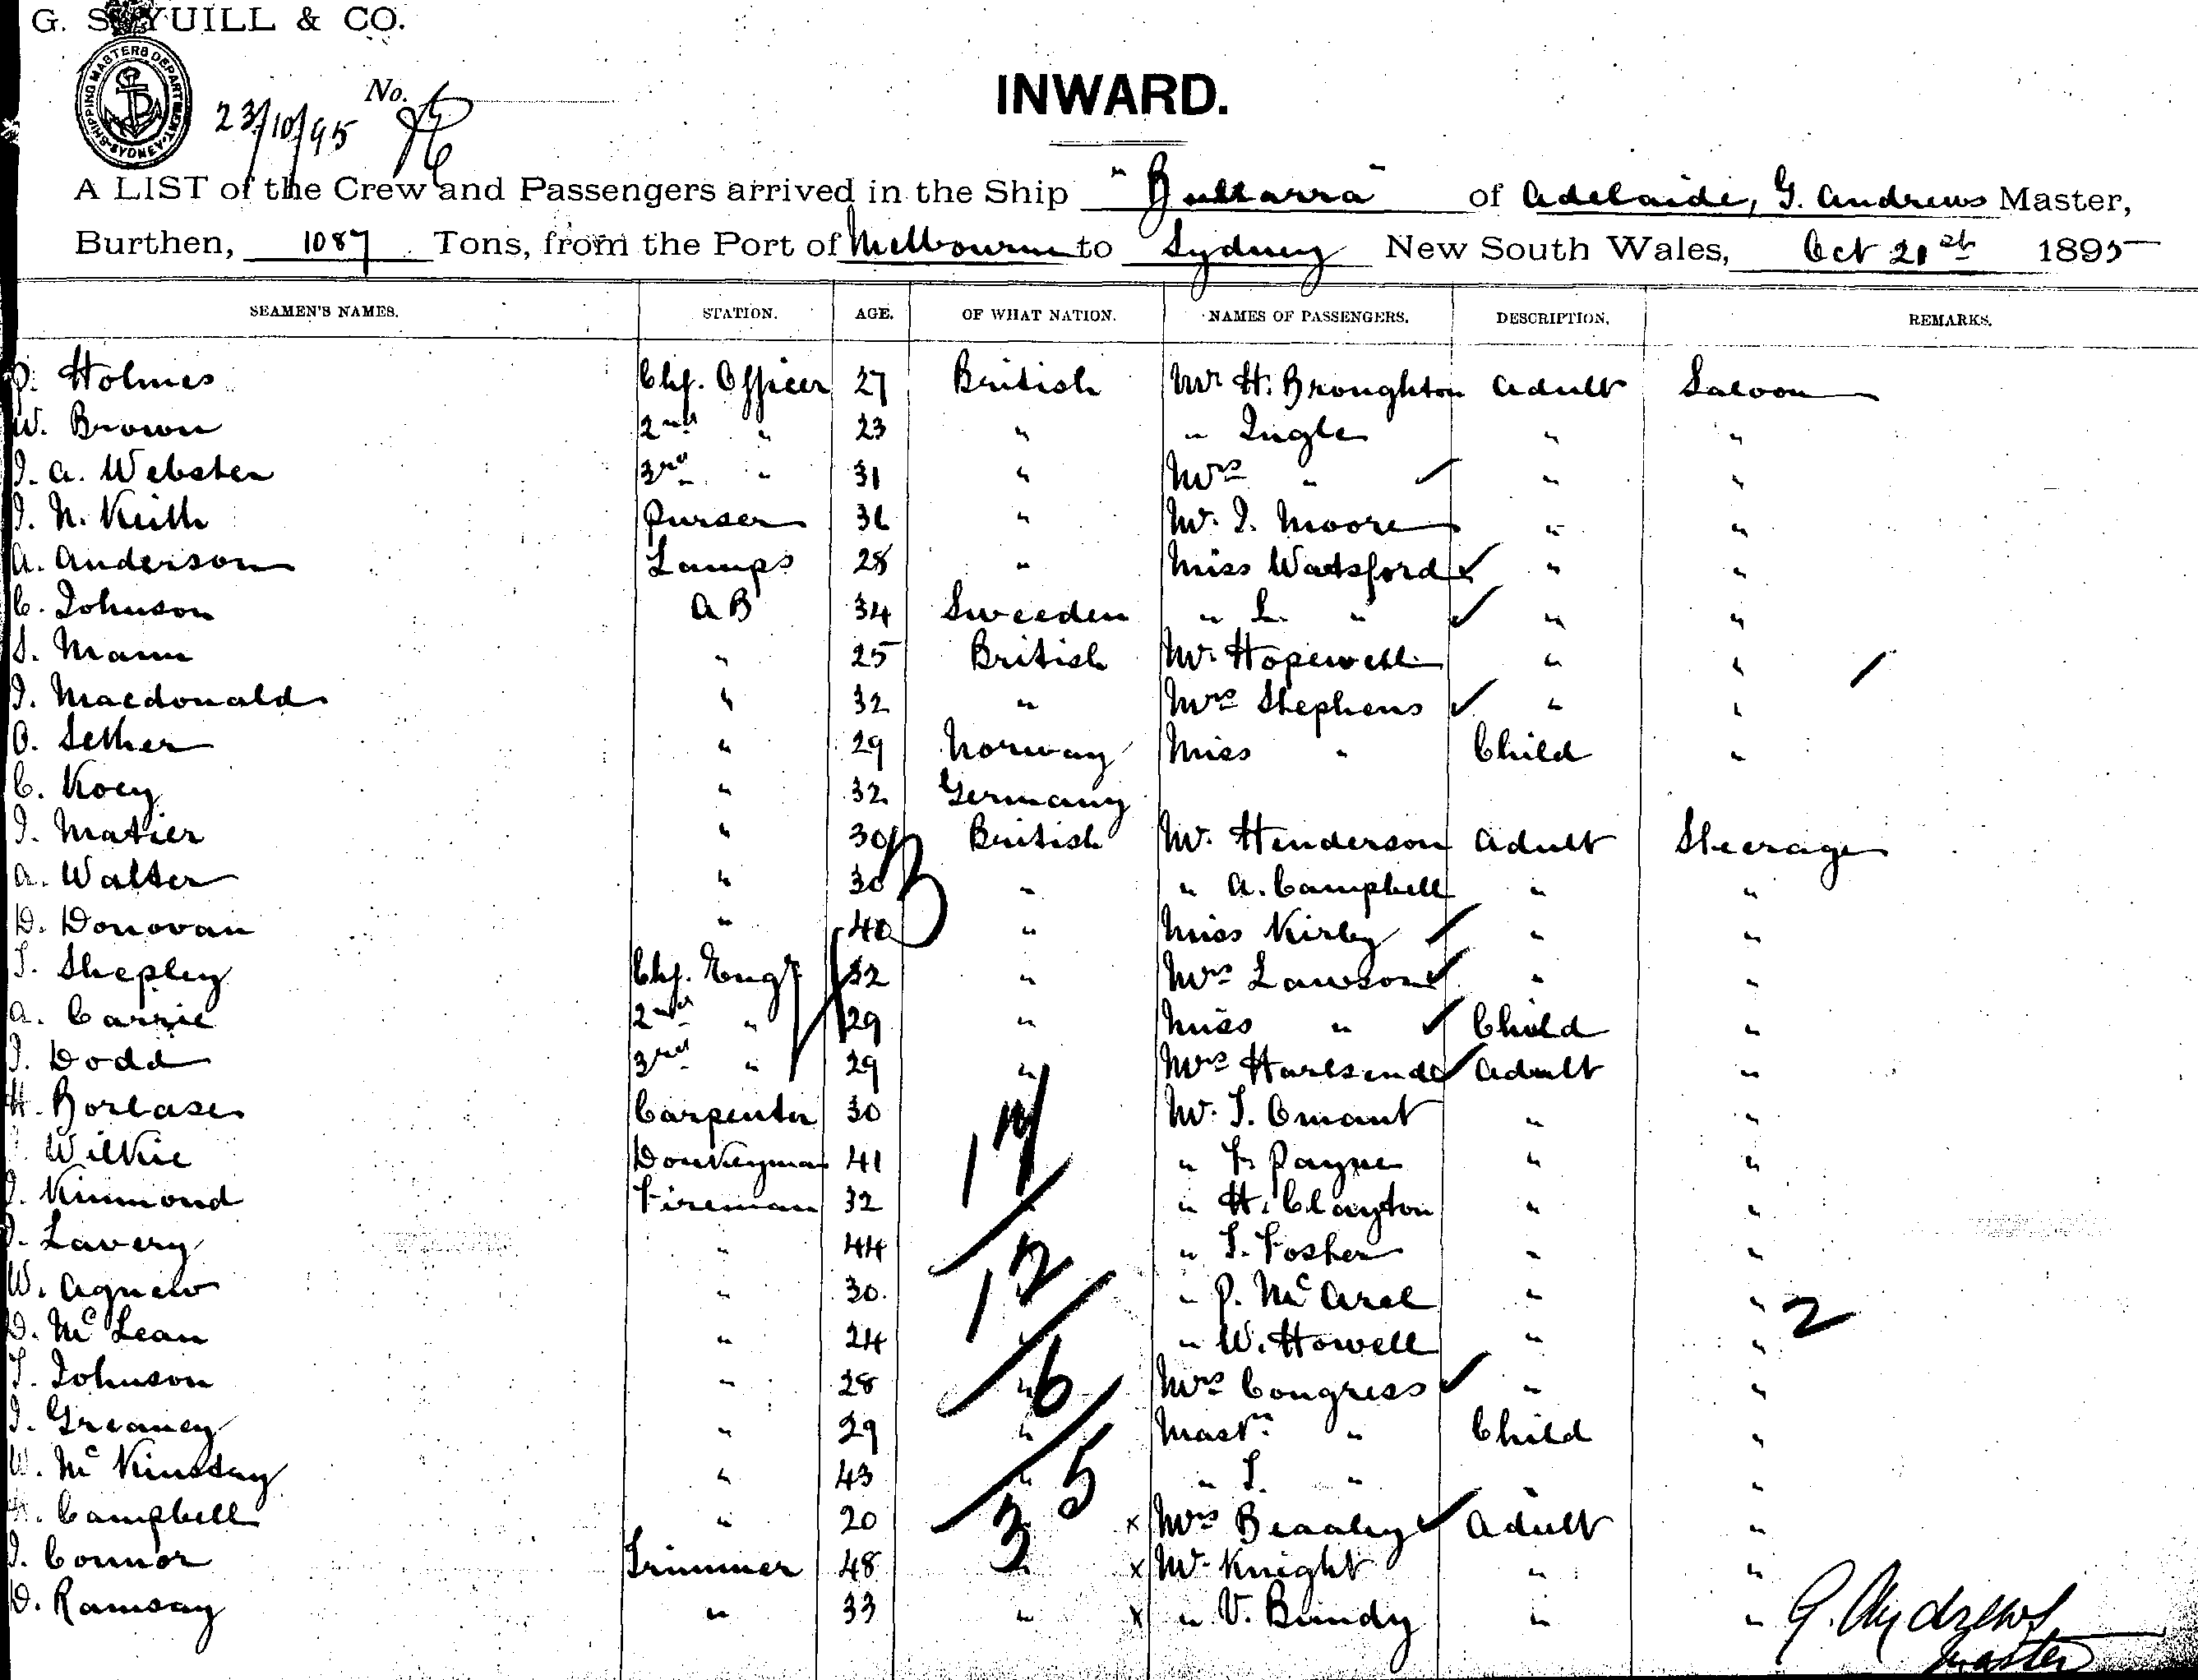 G. S. YUILL & CO.
SHIPPING MASTERS DEPARTMENT SYDNEY
23/10/95 No.
INWARD.
A LIST of the Crew and Passengers arrived in the Ship "Bullarra" of Adelaide, G. Andrews Master,
Burthen, 1087 Tons, from the Port of Melbourne to Sydney New South Wales, Oct 21st 1895
SEAMEN'S NAMES. STATION. AGE. OF WHAT NATION. NAMES OF PASSENGERS. DESCRIPTION. REMARKS.
P. Holmes Chf. Officer 27 British Mr H. Broughton Adult Saloon
W. Brown 2nd " 23 " " Ingle " "
J. A. Webster 3rd " 31 " Mrs " " "
J. N. Keith Purser 36 " Mr. J. Moore " "
A. Anderson Lamps 28 " Miss Watsford " "
C. Johnson AB 34 Sweeden " L. " " "
S. Mann " 25 British Mr. Hopewell " "
J. Macdonald " 32 " Mrs Stephens " "
O. Sether " 29 Norway Miss " Child "
C. Koey " 32 Germany
J. Matier " 30 British Mr. Henderson Adult Steerage
A. Walter " 30 " " A. Campbell " "
D. Donovan " 40 " Miss Kirby " "
T. Shepley Chf. Engr 32 " Mrs Lawson " "
A. Carrie 2nd " 29 " Miss " Child "
J. Dodd 3rd " 29 " Mrs Adult "
H. Borlase Carpenter 30 Mr. T. Omant " "
Wilkie Donkeyman 41 " F. Payne " "
J. Kinmond Fireman 32 " " H. Clayton " "
Lavery " 44 " T. Foster " "
W. Agnew " 30 " " P. McArel " "
D. McLean " 24 " " W. Howell " "
T. Johnson " 28 " Mrs Congress " "
J. Greaney " 29 " Mastr " Child "
W. McKinstay " 43 " " T. " "
Campbell " 20 x Mrs Beazley Adult "
J. Connor Trimmer 48 " x Mr Knight " "
D. Ramsay " 33 " x " V. Bundy " "
17
12
6
5
3
2
G. Andrews
Master